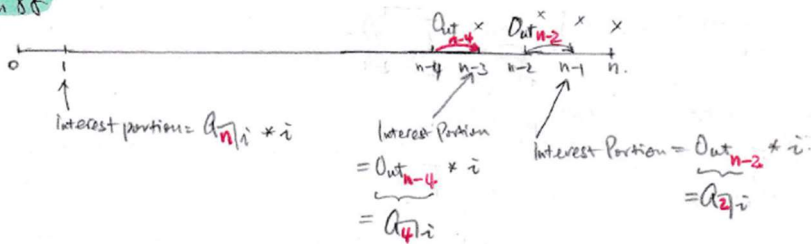 Out n-4 × Out n-2 × × ×
0 1 n-4 n-3 n-2 n-1 n.
Interest portion = a n⌉ i * i
Interest Portion
= Out n-4 * i
= a 4⌉ i
Interest Portion = Out n-2 * i.
= a 2⌉ i